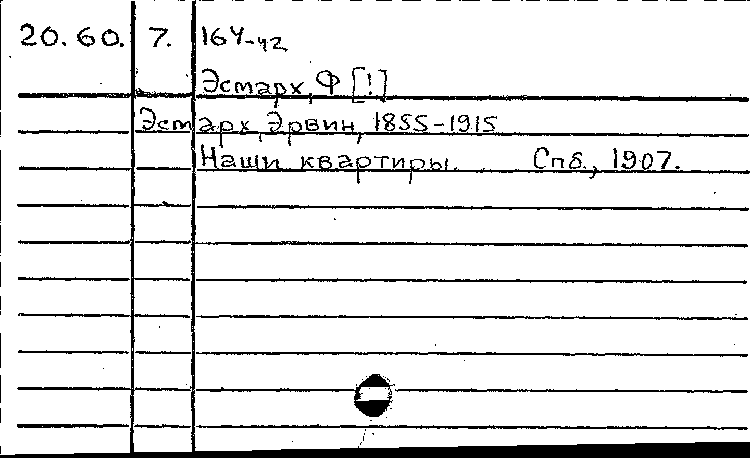 20.60. 7. 164-42
Эсмарх, Ф [!]
Эсмарх, Эрвин, 1855-1915
Наши квартиры. Спб., 1907.